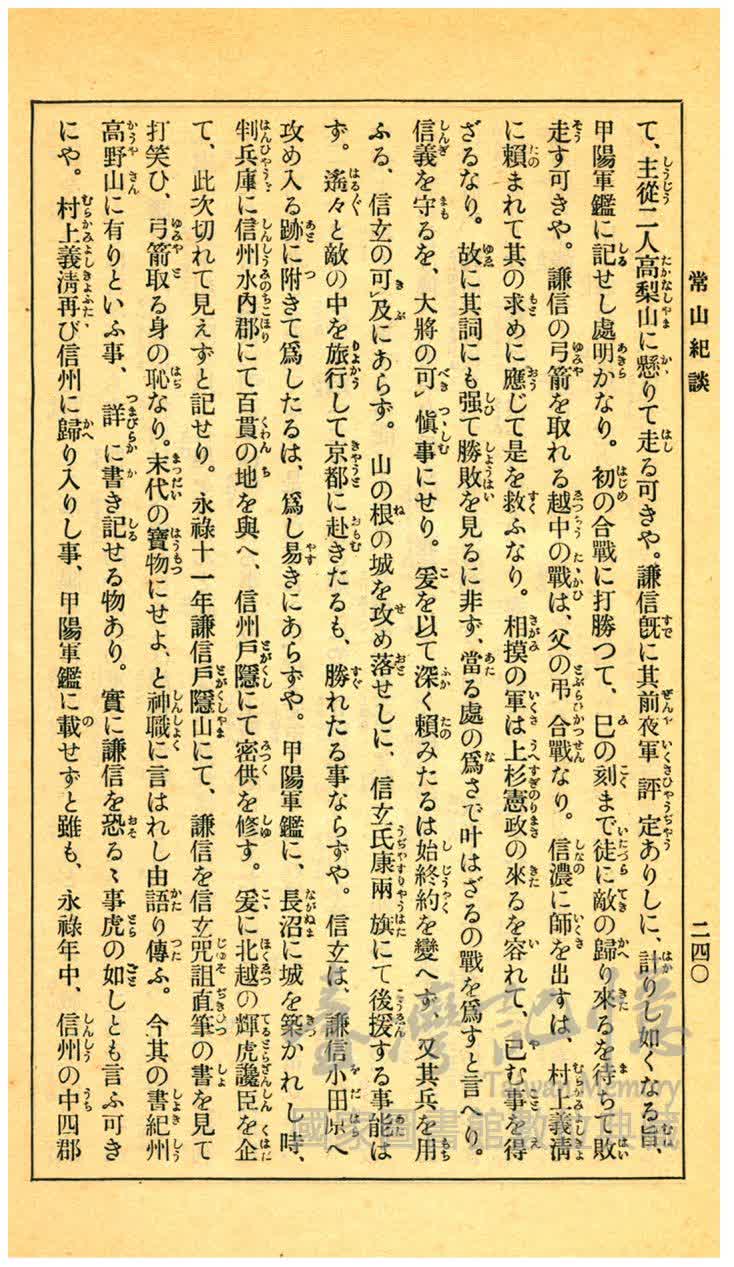 常山紀談
二四〇
て、主從二人高梨山に懸りて走る可きや。謙信既に其前夜軍評定ありしに、計りし如くなる旨、
甲陽軍鑑に記せし處明かなり。初の合戰に打勝つて、巳の刻まで徒に敵の歸り來るを待ちて敗
走す可きや。謙信の弓箭を取れる越中の戰は、父の弔合戰なり。信濃に師を出すは、村上義淸
に賴まれて其の求めに應じて是を救ふなり。相摸の軍は上杉憲政の來るを容れて、已む事を得
ざるなり。故に其詞にも强て勝敗を見るに非ず、當る處の爲さで叶はざるの戰を爲すと言へり。
信義を守るを、大將の可愼事にせり。爰を以て深く賴みたるは始終約を變へず、又其兵を用
ふる、信玄の可及にあらず。山の根の城を攻め落せしに、信玄氏康兩旗にて後援する事能は
ず。遙々と敵の中を旅行して京都に赴きたるも、勝れたる事ならずや。信玄は、謙信小田原へ
攻め入る跡に附きて爲したるは、爲し易きにあらずや。甲陽軍鑑に、長沼に城を築かれし時、
判兵庫に信州水內郡にて百貫の地を與へ、信州戶隱にて密供を修す。爰に北越の輝虎讒臣を企
て、此次切れて見えずと記せり。永祿十一年謙信戶隱山にて、謙信を信玄咒詛直筆の書を見て
打笑ひ、弓箭取る身の恥なり。末代の寶物にせよ、と神職に言はれし由語り傳ふ。今其の書紀州
高野山に有りといふ事、詳に書き記せる物あり。實に謙信を恐るゝ事虎の如しとも言ふ可き
にや。村上義淸再び信州に歸り入りし事、甲陽軍鑑に載せずと雖も、永祿年中、信州の中四郡
臺灣記憶
Taiwan Memory
國家圖書館數位典藏